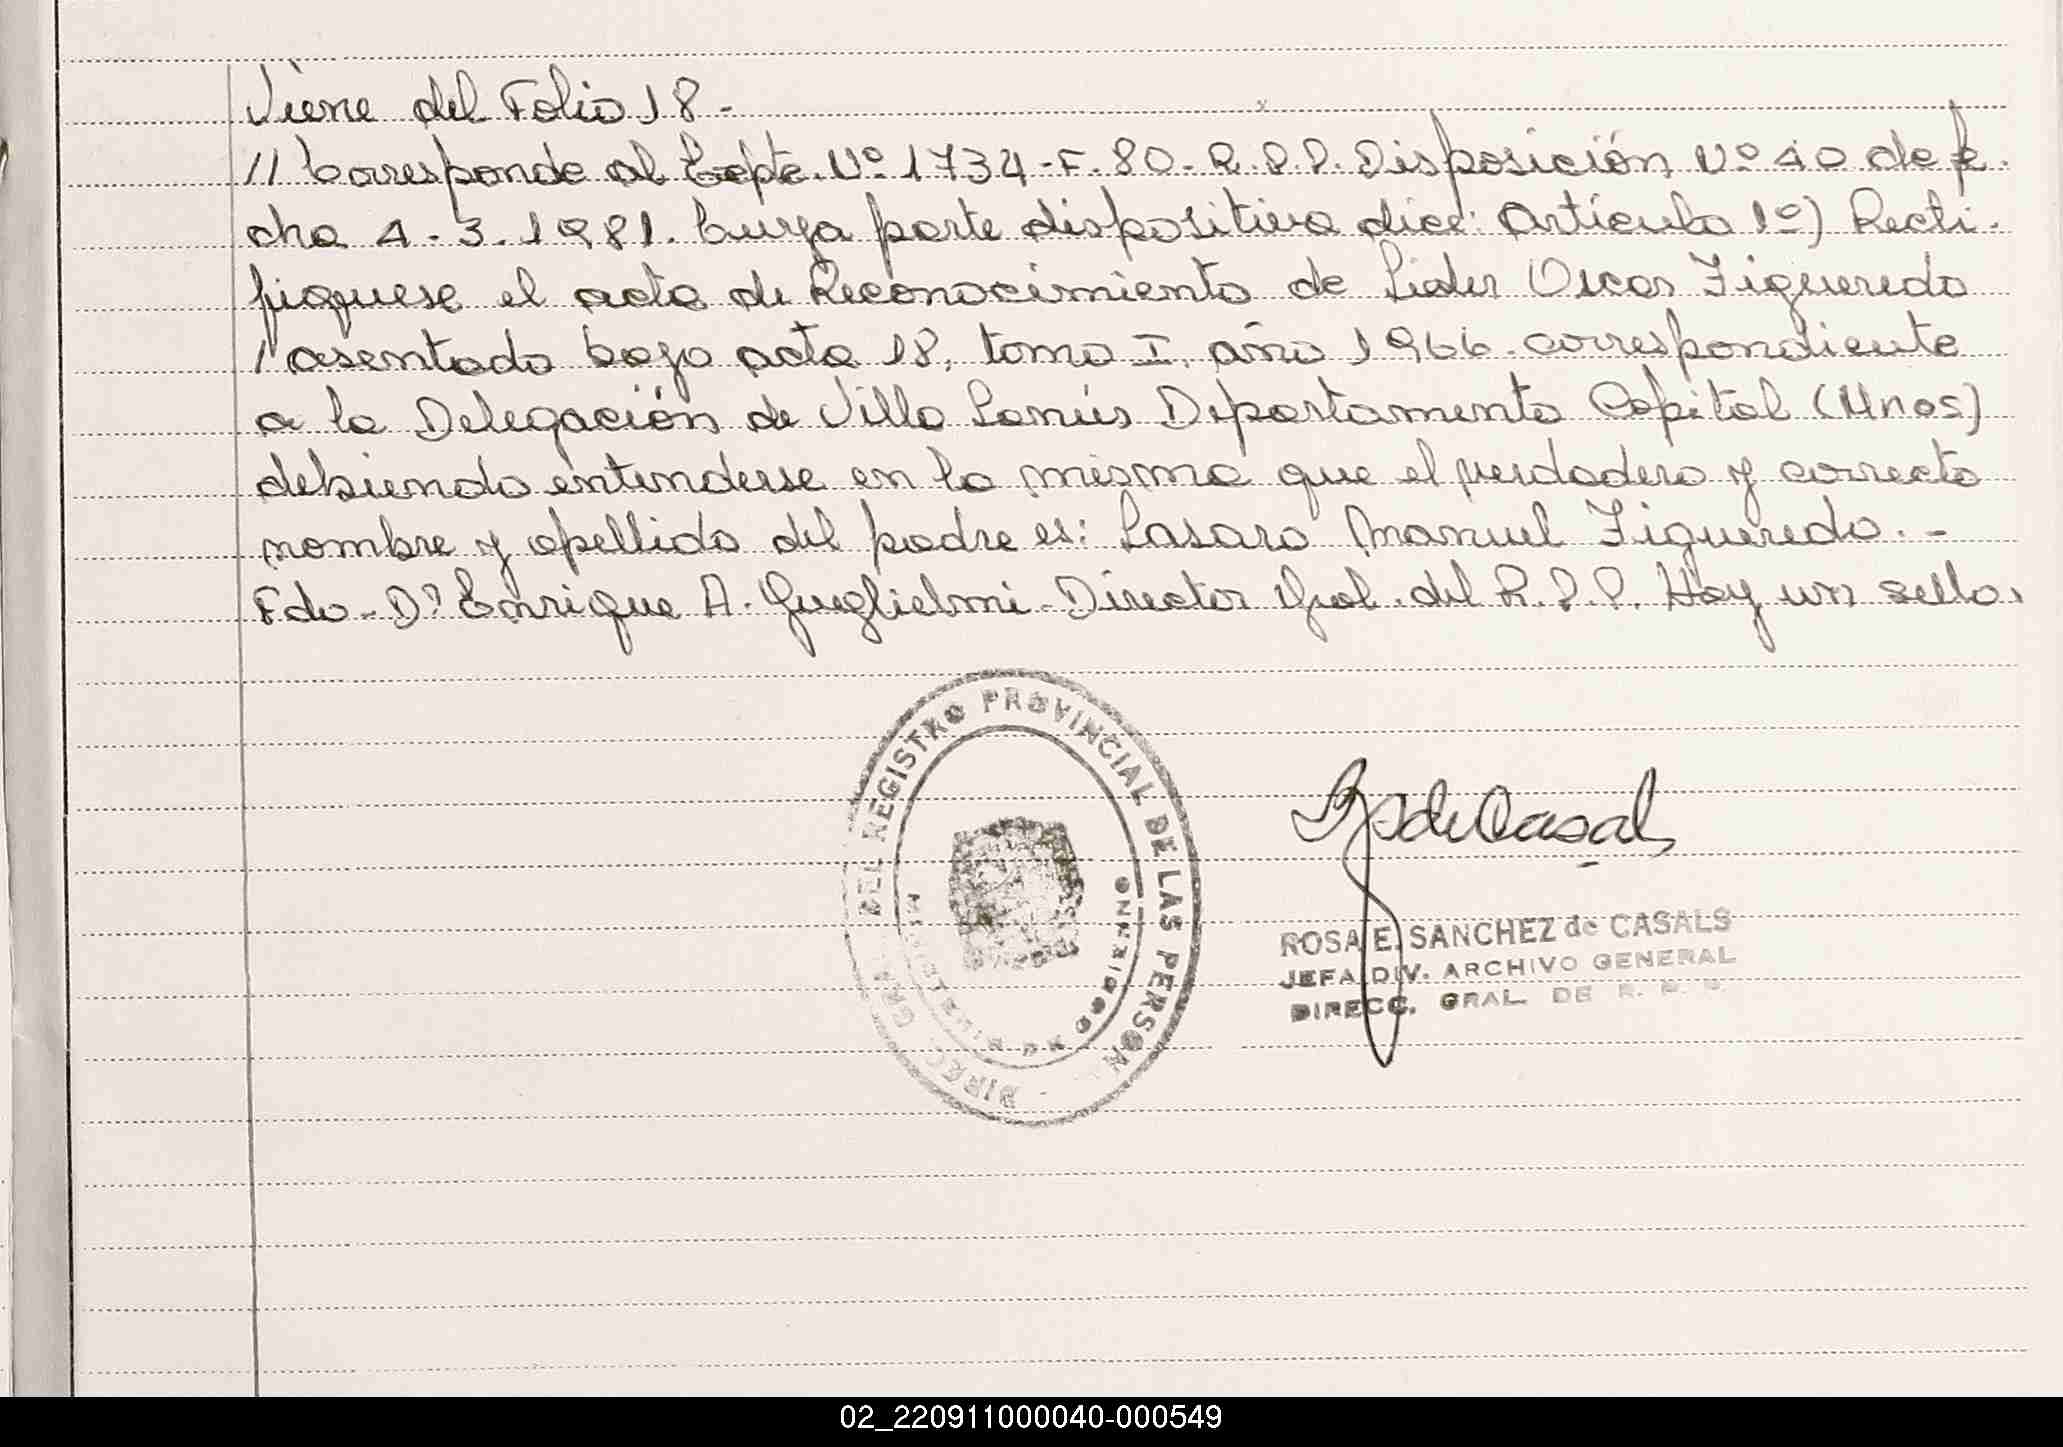 Viene del Folio 18 -
// Corresponde al Expte. Nº 1734-F-80-R.P.P. Disposición Nº 40 de fe-
cha 4-3-1981. Cuya parte dispositiva dice: Artículo 1º) Recti-
fiquese el acta de Reconocimiento de Lider Oscar Figueredo
/ asentado bajo acta 18, tomo I, año 1966. correspondiente
a la Delegación de Villa Lanús Departamento Capital (Mnes)
debiendo entenderse en la misma que el verdadero y correcto
nombre y apellido del padre es: Lasaro Manuel Figueredo. -
Fdo - Dº Enrique A. Guglielmi - Director Gral. del R.P.P. Hay un sello.
DIREC. GRAL. DEL REGISTRO PROVINCIAL DE LAS PERSON
POSADAS
ROSA E. SANCHEZ de CASALS
JEFA DIV. ARCHIVO GENERAL
DIRECC. GRAL. DE R. P. P.
02_220911000040-000549